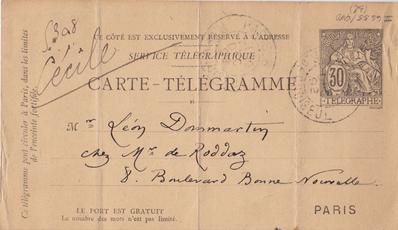 (29)
6308
Cécile
CE CÔTÉ EST EXCLUSIVEMENT RÉSERVÉ À L'ADRESSE
SERVICE TÉLÉGRAPHIQUE
CARTE-TÉLÉGRAMME
30
TÉLÉGRAPHE
Ce télégramme peut circuler à Paris, dans les limites
de l'enceinte fortifiée.
M r Léon Dommartin
chez Mr de Roddaz
8. Boulevard Bonne Nouvelle
LE PORT EST GRATUIT
Le nombre des mots n'est pas limité.
PARIS